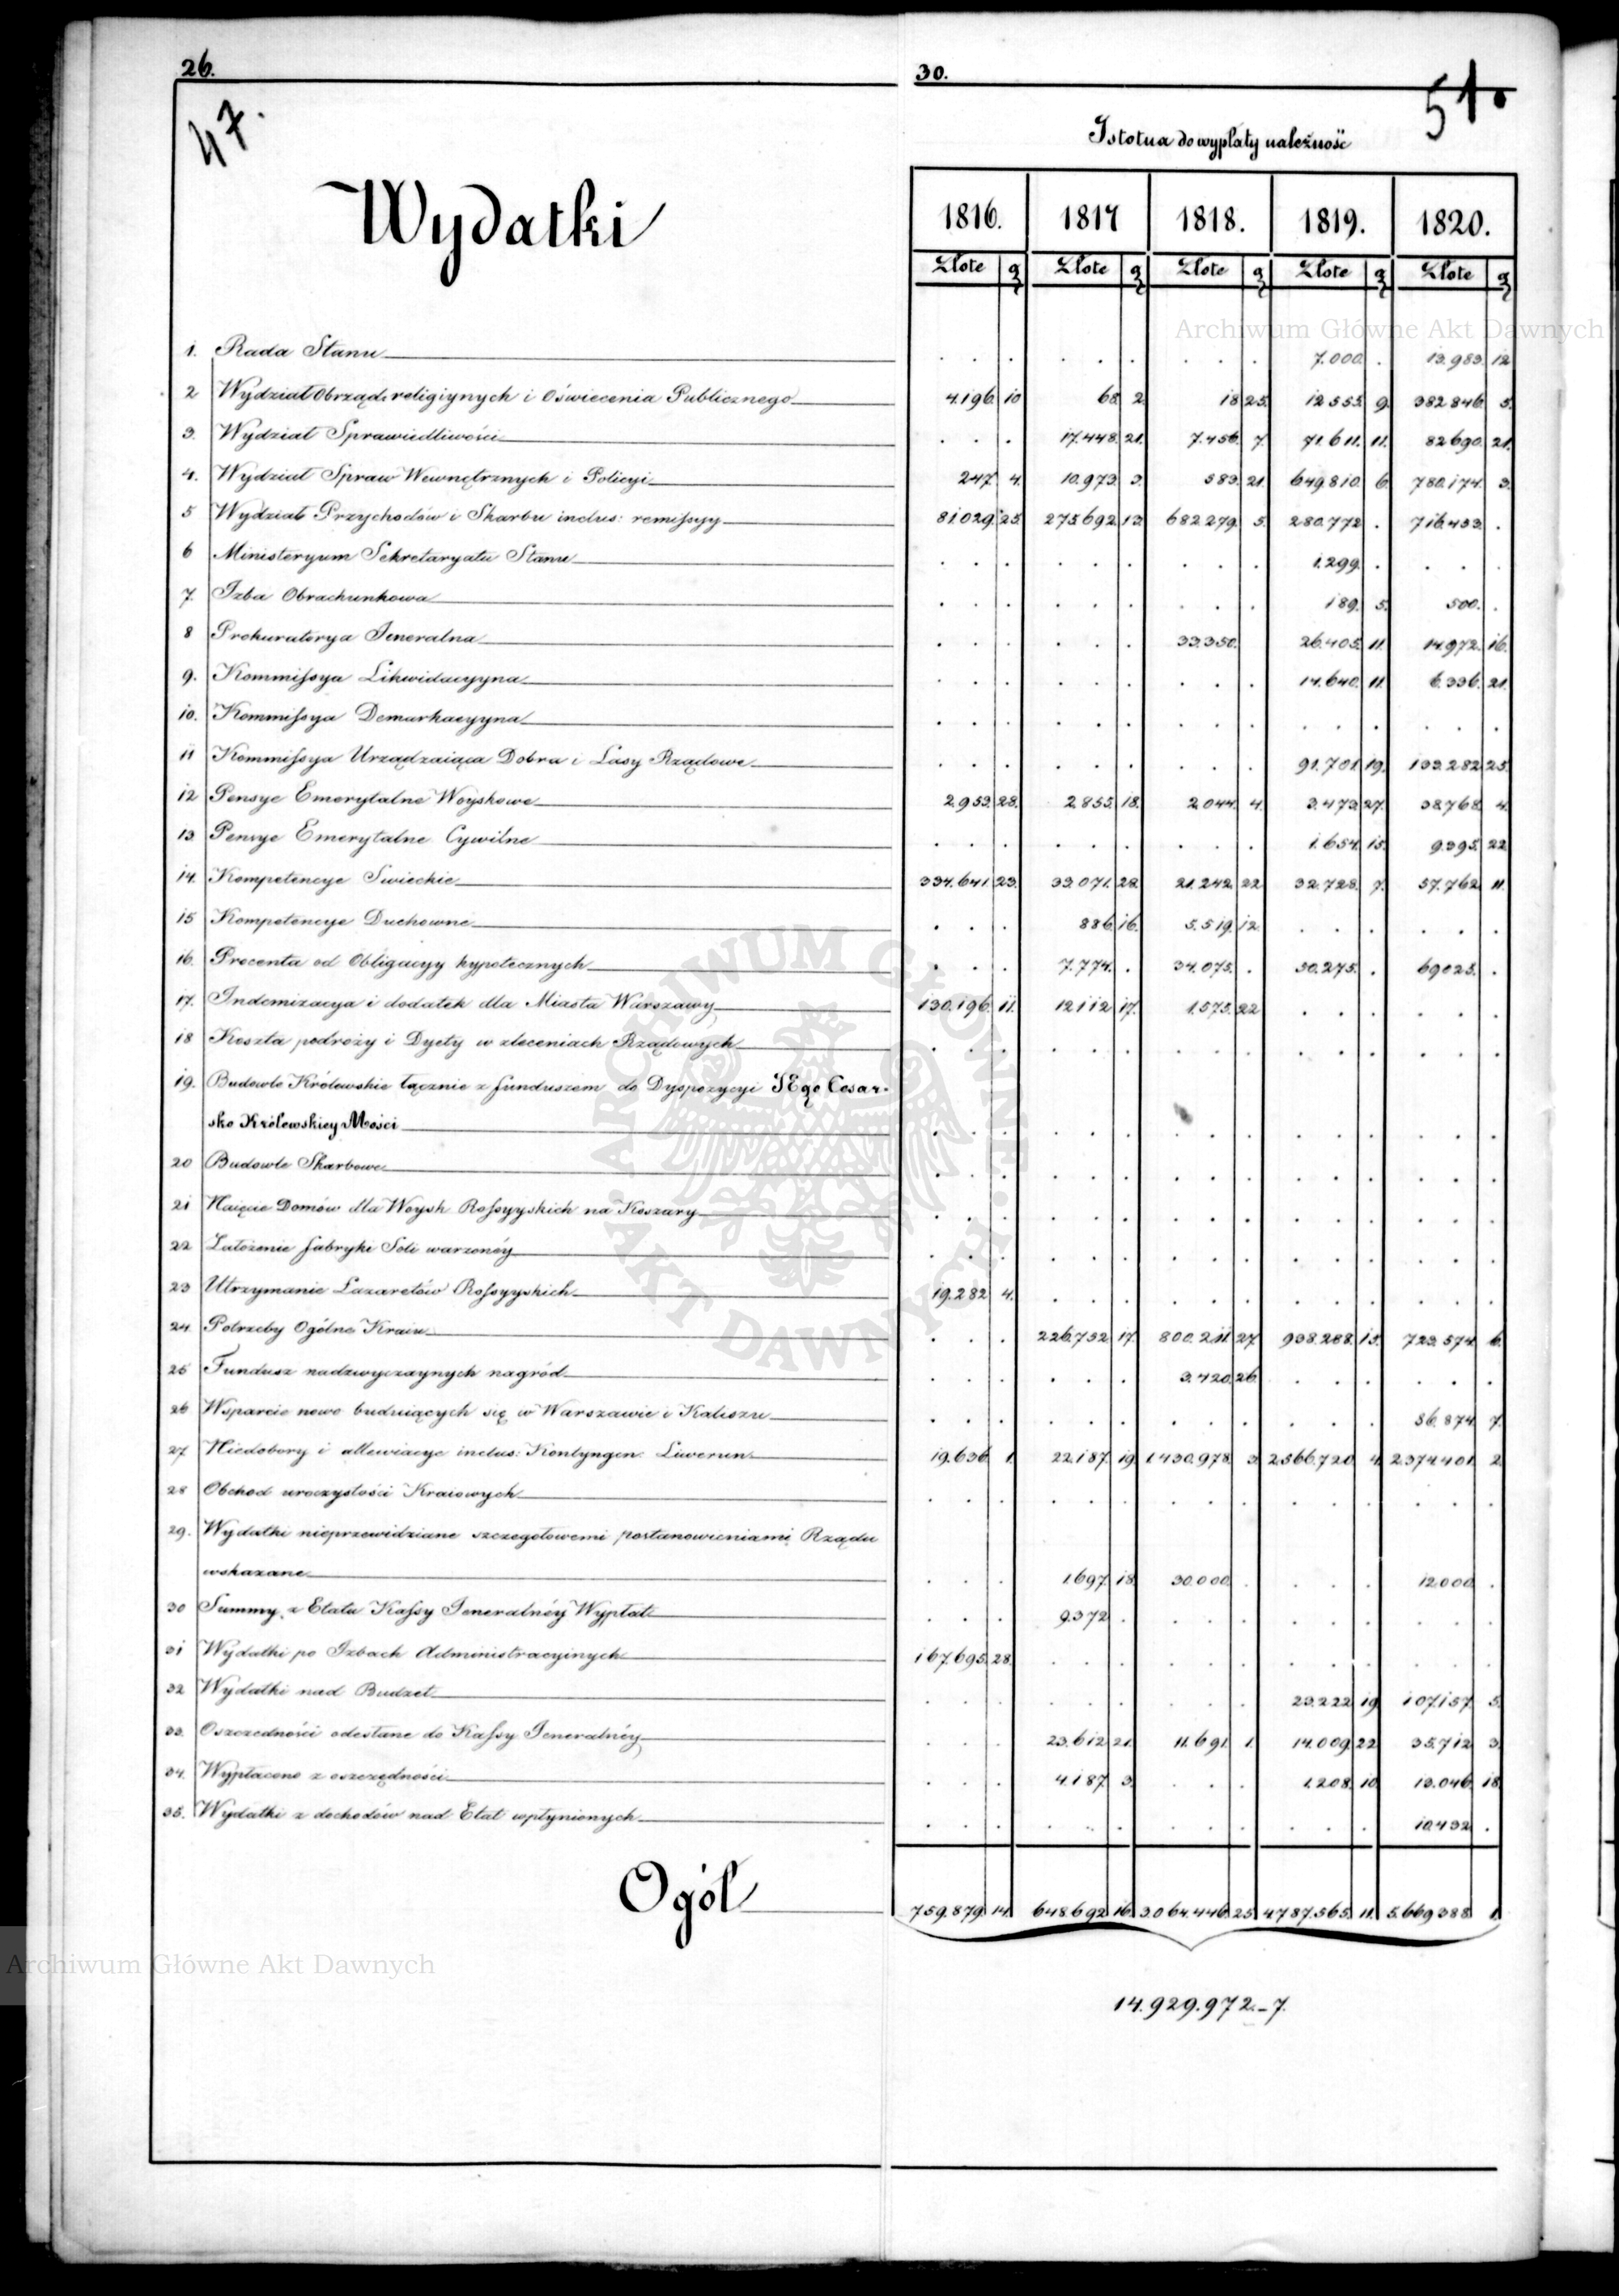 26.
30.
47.
51.
Istotna do wypłaty należność
Wydatki
1816. 1817 1818. 1819. 1820.
Złote g Złote g Złote g Złote g Złote g
Archiwum Główne Akt Dawnych
1. Rada Stanu . . . . . . . . . 7.000. . 13.983. 12
2 Wydział Obrząd. religiynych i Oświecenia Publicznego 4.196. 10 68. 2. 18 25. 12 555. 9. 382 846. 5.
3. Wydział Sprawiedliwości . . . 17.448. 21. 7.456. 7. 71.611. 11. 82 690. 21.
4. Wydział Spraw Wewnętrznych i Policyi 247. 4. 10.973. 3. 583. 21. 649.810. 6. 780.174. 3.
5 Wydział Przychodów i Skarbu inclus: remissyy 81.029. 25. 275 692. 13. 682 279. 5. 280.772 . 716.433. .
6 Ministeryum Sekretaryatu Stanu . . . . . . . . . 1.299. . . . .
7. Izba Obrachunkowa . . . . . . . . . 189. 5. 500. .
8 Prokuratorya Jeneralna . . . . . . 33.350. 26.405. 11. 14.972. 16.
9. Kommissya Likwidacyyna . . . . . . . . . 14.640. 11. 6.336. 21.
10. Kommissya Demarkacyyna . . . . . . . . . . . . . . .
11 Kommissya Urządzaiąca Dobra i Lasy Rządowe . . . . . . . . . 91.701. 19. 133.282 25.
12 Pensye Emerytalne Woyskowe 2.953. 28. 2 855. 18. 2.044. 4. 3.473. 27. 38.768. 4.
13. Pensye Emerytalne Cywilne . . . . . . . . . 1.654. 15. 9.395. 22
14. Kompetencye Swieckie 334.641. 23. 33.071. 28. 21.242. 22 32.728. 7. 57.762. 11.
15 Kompetencye Duchowne . . . 886. 16. 5.519. 12 . . . . . .
16. Procenta od Obligacyy hypotecznych . . . 7.774. . 34.075. . 30.275. . 69025. .
17. Indemizacya i dodatek dla Miasta Warszawy 130.196. 11. 12 112 17. 1.575. 22 . . . . . .
18 Koszta podróży i Dyety w zleceniach Rządowych . . . . . . . . . . . . . . .
19. Budowle Królewskie łącznie z funduszem do Dyspozycyi JEgo Cesar-
sko Królewskiey Mości . . . . . . . . . . . . . . .
20 Budowle Skarbowe . . . . . . . . . . . . . . .
21 Naięcie Domów dla Woysk Rossyyskich na Koszary . . . . . . . . . . . . . . .
22 Założenie fabryki Soli warzonéy . . . . . . . . . . . . . . .
23 Utrzymanie Lazaretów Rossyyskich 19.282 4. . . . . . . . . . . . .
24. Potrzeby Ogólne Kraiu . . . 226.732 17. 800.211. 27. 938.288. 15. 723.574. 6.
25 Fundusz nadzwyczaynych nagród . . . . . . 3.420. 26. . . . . . .
26 Wsparcie nowo buduiących się w Warszawie i Kaliszu . . . . . . . . . . . . 56.874. 7.
27. Niedobory i allewiacye inclus: Kontyngen. Liwerun. 19.636. 1. 22.187. 19. 1.430.978. 3. 2.566.720. 4. 2.374.401. 2.
28 Obchod uroczystości Kraiowych . . . . . . . . . . . . . . .
29. Wydatki nieprzewidziane szczegółowemi postanowieniami Rządu
wskazane . . . 1.697. 18. 30.000. . . . . 12.000. .
30 Summy z Etatu Kassy Jeneralnéy Wypłat . . . 9.372 . . . . . . . . . .
31 Wydatki po Izbach Administracyinych 167.695. 28. . . . . . . . . . . . .
32 Wydatki nad Budzet . . . . . . . . . 23.222 19. 107.157. 5.
33. Oszczędności odesłane do Kassy Jeneralnéy . . . 23.612 21. 11.691. 1. 14.009. 22 35.712 3.
34. Wypłacono z oszczędności . . . 4.187. 3. . . . 1.208. 10. 13.046. 18.
35. Wydatki z dochodów nad Etat wpłynionych . . . . . . . . . . . . 10.432. .
Ogół 759.879. 14. 648.692 16. 3.064.446. 25. 4.787.565. 11. 5.669.388. 1.
14.929.972.-7.
Archiwum Główne Akt Dawnych
ARCHIWUM GŁÓWNE AKT DAWNYCH